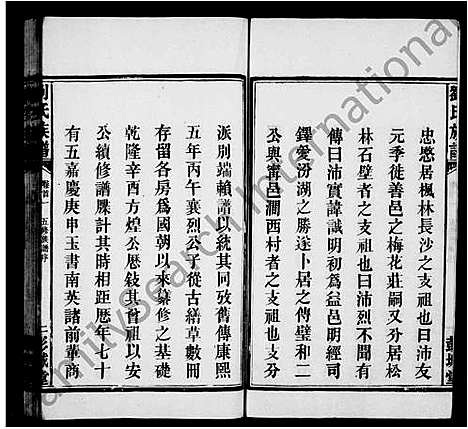 劉氏族譜
忠愍居楓林長沙之支祖也曰沛友
元季徙善邑之梅花莊嗣又分居松
林石壁者之支祖也曰沛烈不聞有
傳曰沛實諱誠明初爲益邑明經司
鐸愛汾湖之勝遂卜居之傳璧和二
公與甯邑澗西村者之支祖也支分
彭城堂
派別端賴譜以統其同攷舊傳康熙
五年丙午襄烈公子從古繕草數冊
存留各房爲國朝以來纂修之基礎
乾隆辛酉方煌公歷敍其首祖以安
公續修譜牒計其時相距歷年七十
有五嘉慶庚申玉書南英諸前輩商
劉氏族譜
卷首
五修族譜序
二
彭城堂
Familysearch International